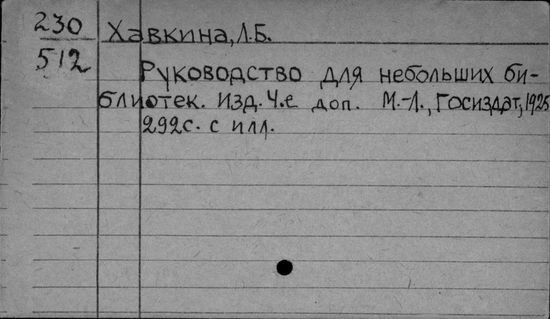 230 Хавкина, Л.Б.
512
Руководство для небольших би-
блиотек. Изд. 4.е доп. М.-Л., Госиздат, 1925
292с. с илл.